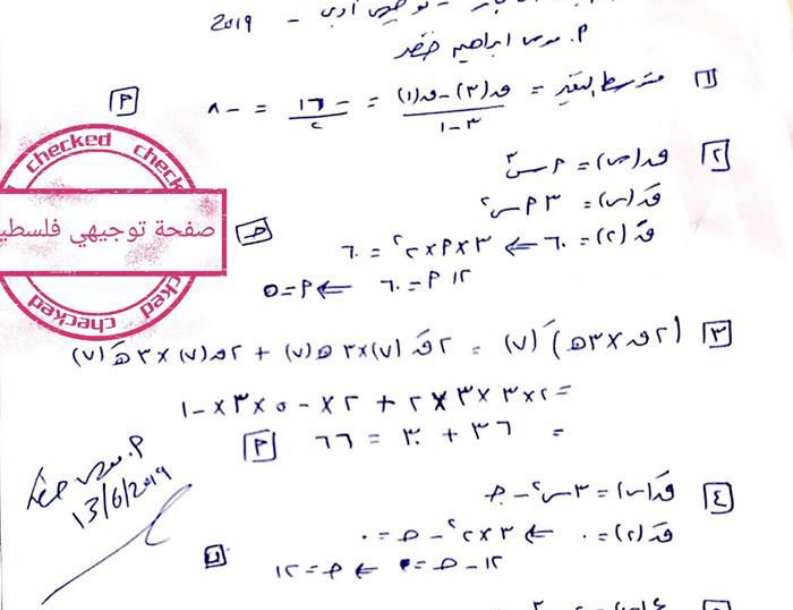 توجيهي أدبي - 2019
م. موسى ابراهيم خضر
١ متوسط التغير = (ق(٣) - ق(١)) / (٣ - ١) = -١٦ / ٢ = -٨ م
٢ ق(س) = م س٣
قَ(س) = ٣ م س٢
قَ(٢) = ٦٠ ⇐ ٣ × م × ٢٢ = ٦٠ ج
١٢ م = ٦٠ ⇐ م = ٥
٣ (٢ق × ٣هـ)َ(٧) = ٢قَ(٧) × ٣هـ(٧) + ٢ق(٧) × ٣هـَ(٧)
= ٢ × ٣ × ٣ × ٢ + ٢ × -٥ × ٣ × -١
= ٣٦ + ٣٠ = ٦٦ م
٤ قَ(س) = ٣س٢ - جـ
قَ(٢) = ٠ ⇐ ٣ × ٢٢ - جـ = ٠
١٢ - جـ = ٠ ⇐ جـ = ١٢ د
13/6/2019
checked checked
صفحة توجيهي فلسطي
checked checked